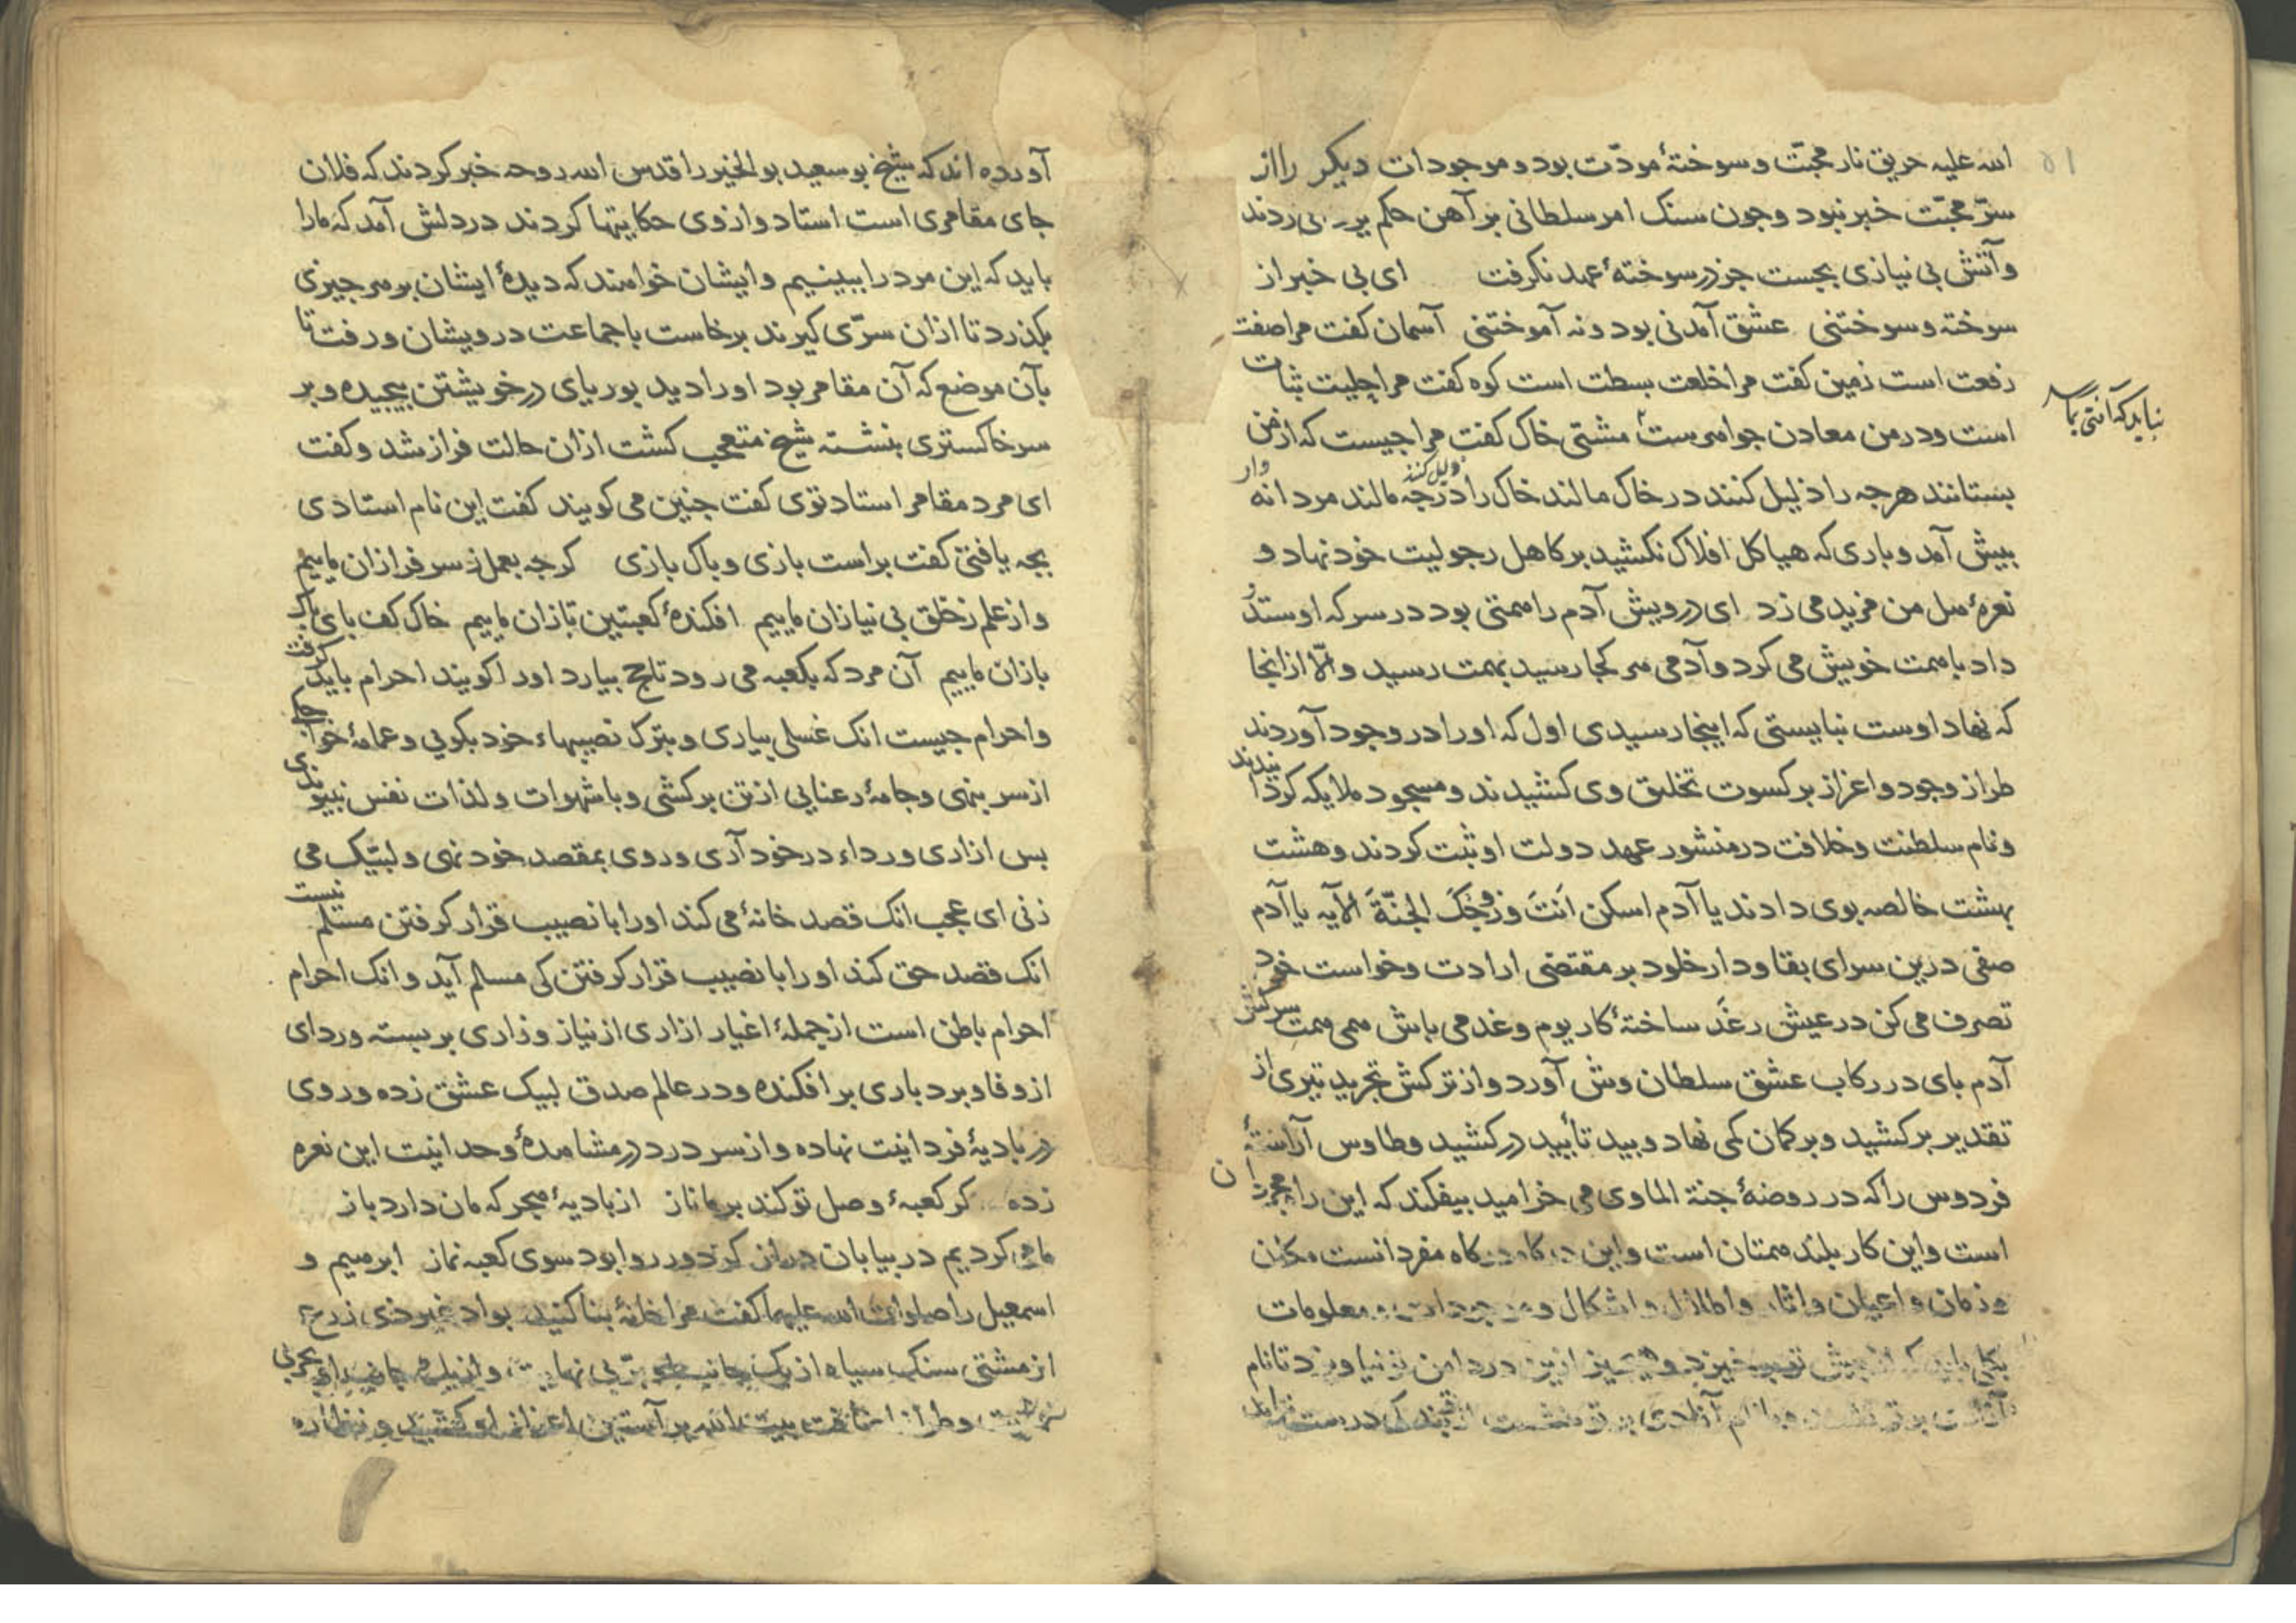 الله علیه حریق نار محبّت و سوختهٔ مودّت بود و موجودات دیکر را از
سرّ محبّت خبر نبود و جون سنک امر سلطانی بر آهن حکم
و آتش بی نیازی بجست جز در سوختهٔ عهد نکرفت ای بی خبر از
سوخته و سوختنی عشق آمدنی بود و نه آموختنی آسمان کفت مرا صفت
رفعت است زمین کفت مرا خلعت بسطت است کوه کفت مرا حلیت ثبات
است و در من معادن جواهرست مشتی خاک کفت مرا جیست که از من
بستانند هرجه را ذلیل کنند در خاک مالند خاک را در جه مالند مردانه وار
ذلیل کنند
بیش آمد و باری که هیاکل افلاک نکشید بر کاهل رجولیت خود نهاد و
نعرهٔ هل من مزید می زد ای درویش آدم را همتی بود در سر که او ستد
داد با همت خویش می کرد و آدمی هر کجا رسید بهمت رسید و الّا از انجا
که نهاد اوست نبایستی که اینجا رسیدی اول که او را در وجود آوردند
طراز وجود و اعزاز بر کسوت تخلیق وی کشیدند و مسجود ملایکه کردانیدند
و نام سلطنت و خلافت در منشور عهد دولت او ثبت کردند و هشت
بهشت خالصه بوی دادند یا آدم اسکن اَنتَ وَزَوجُکَ الجَنّةَ الآیه یا آدم
صفی درین سرای بقا و دار خلود بر مقتضی ارادت و خواست خود
تصرف می کن در عیش رغَد ساختهٔ کار یوم و غد می باش همی همت سرکش
آدم بای در رکاب عشق سلطان وش آورد و از ترکش تجرید تیری از
تقدیر بر کشید و بر کمان کی نهاد و بید تأیید در کشید و طاوس آراستهٔ
فردوس را که در روضهٔ جنة الماوی می خرامید بیفکند که این راه مجردان
است و این کار بلند همتان است و این درکاه مفردانست مکان
و زمان و اعیان و اثار و اطلال و اشکال و موجودات و معلومات
از بیش تو بر خیزد و از درد امن تو نیاویزد تا نام
بر تو آزادی بر تو نشست از بندکی درست
آورده اند که شیخ بو سعید بو الخیر را قدس الله روحه خبر کردند که فلان
جای مقامری است استاد و از وی حکایتها کردند در دلش آمد که ما را
باید که این مرد را ببینیم و ایشان خواهند که دیدهٔ ایشان بر هر جیزی
بکذرد تا از ان سرّی کیرند برخاست با جماعت درویشان و رفت تا
بآن موضع که آن مقامر بود او را دید بوریای در خویشتن بیجیده و بر
سر خاکستری بنشسته شیخ متعجب کشت از ان حالت فراز شد و کفت
ای مرد مقامر استاد توی کفت جنین می کویند کفت این نام استادی
بجه یافتی کفت براست بازی و باک بازی کرجه بعمل ز سر فرازان ماییم
و از علم ز خلق بی نیازان ماییم افکندهٔ کعبتین بازان ماییم خاک کف بای باک
بازان ماییم آن مرد که بکعبه می رود تا حج بیارد او را کویند احرام باید کرفت
و احرام جیست انک غسلی بیاری و بترک نصیبهاء خود بکویی و عمامهٔ خواجکی
از سر بنهی و جامهٔ رعنایی از تن بر کشی و با شهوات و لذات نفس نبیوندی
بس ازاری و رداء در خود آری و روی بمقصد خود نهی و لبیّک می
زنی ای عجب انک قصد خانهٔ می کند او را با نصیب قرار کرفتن مسلم نیست
انک قصد حق کند او را با نصیب قرار کرفتن کی مسلم آید و انک احرام
احرام باطن است از جملهٔ اغیار ازاری از نیاز و زاری بر بسته و ردای
از وفا و بردباری بر افکنده و در عالم صدق لبیک عشق زده و روی
در بادیهٔ فردانیت نهاده و از سر درد در مشاهدهٔ وحدانیت این نعره
زده کر کعبهٔ وصل تو کند بر ما ناز از بادیهٔ هجر که مان دارد باز
ما می کردیم در بیابان دراز کز دور روا بود سوی کعبه نماز ابرهیم و
اسمعیل را صلوات الله علیهما کفت مرا خانهٔ بنا کنید بواد غیر ذی زرع
از مشتی سنک سیاه از یک جانب بی نهایت و از یک جانب
و طراز اضافت بیت الله بر آستین اعزاز او کشید و نظاره